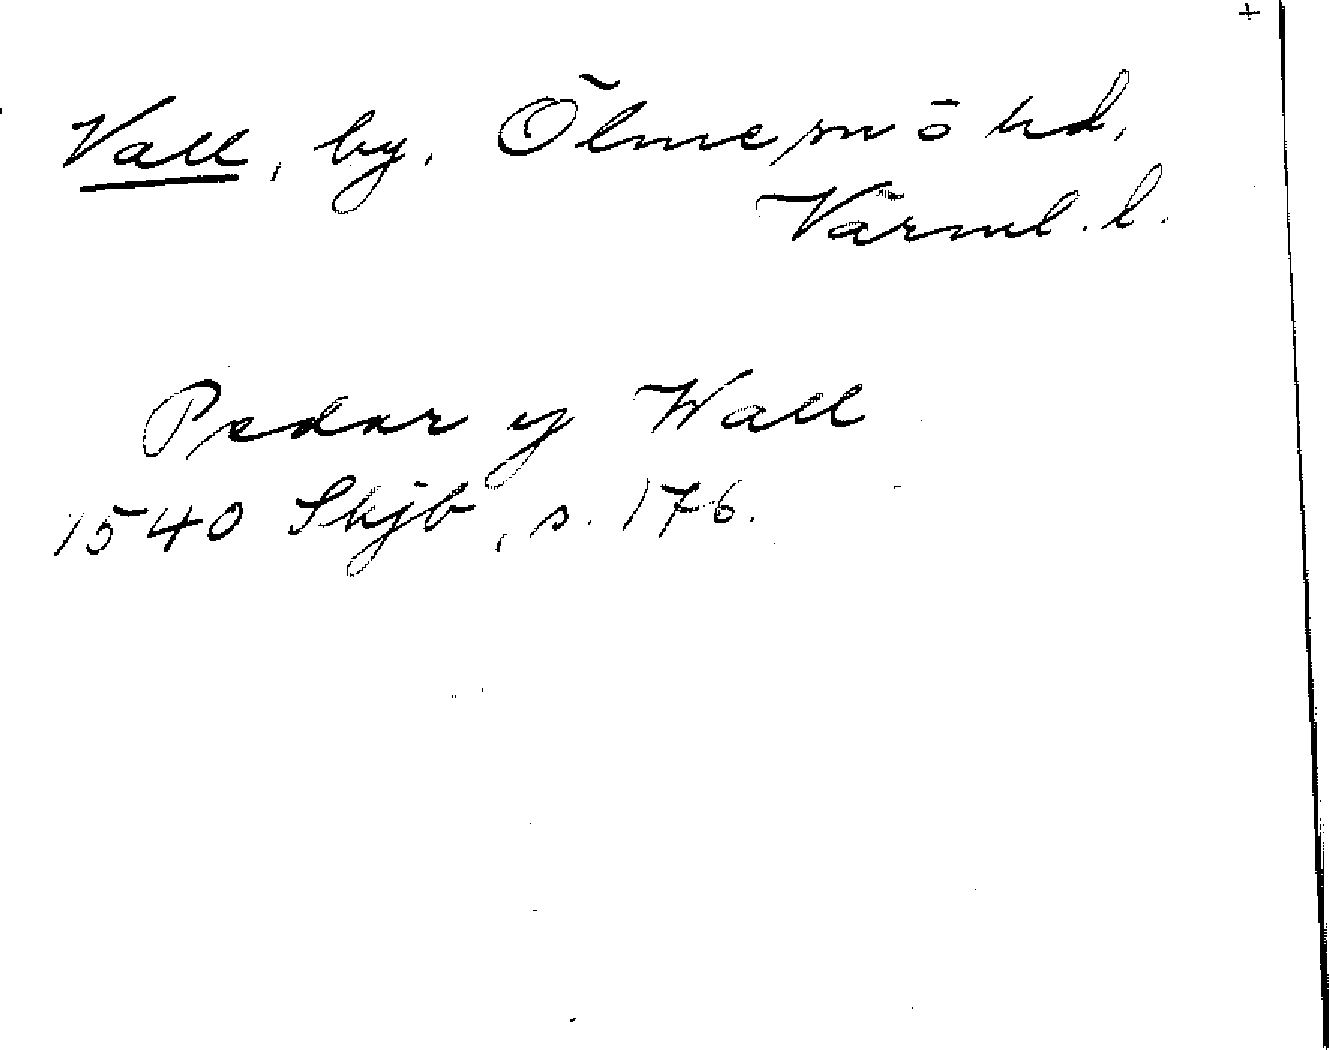 +
Vall, by, Ölme sn o hd,
Värml. l.
Pedar y Wall
1540 Skjb, s. 176.